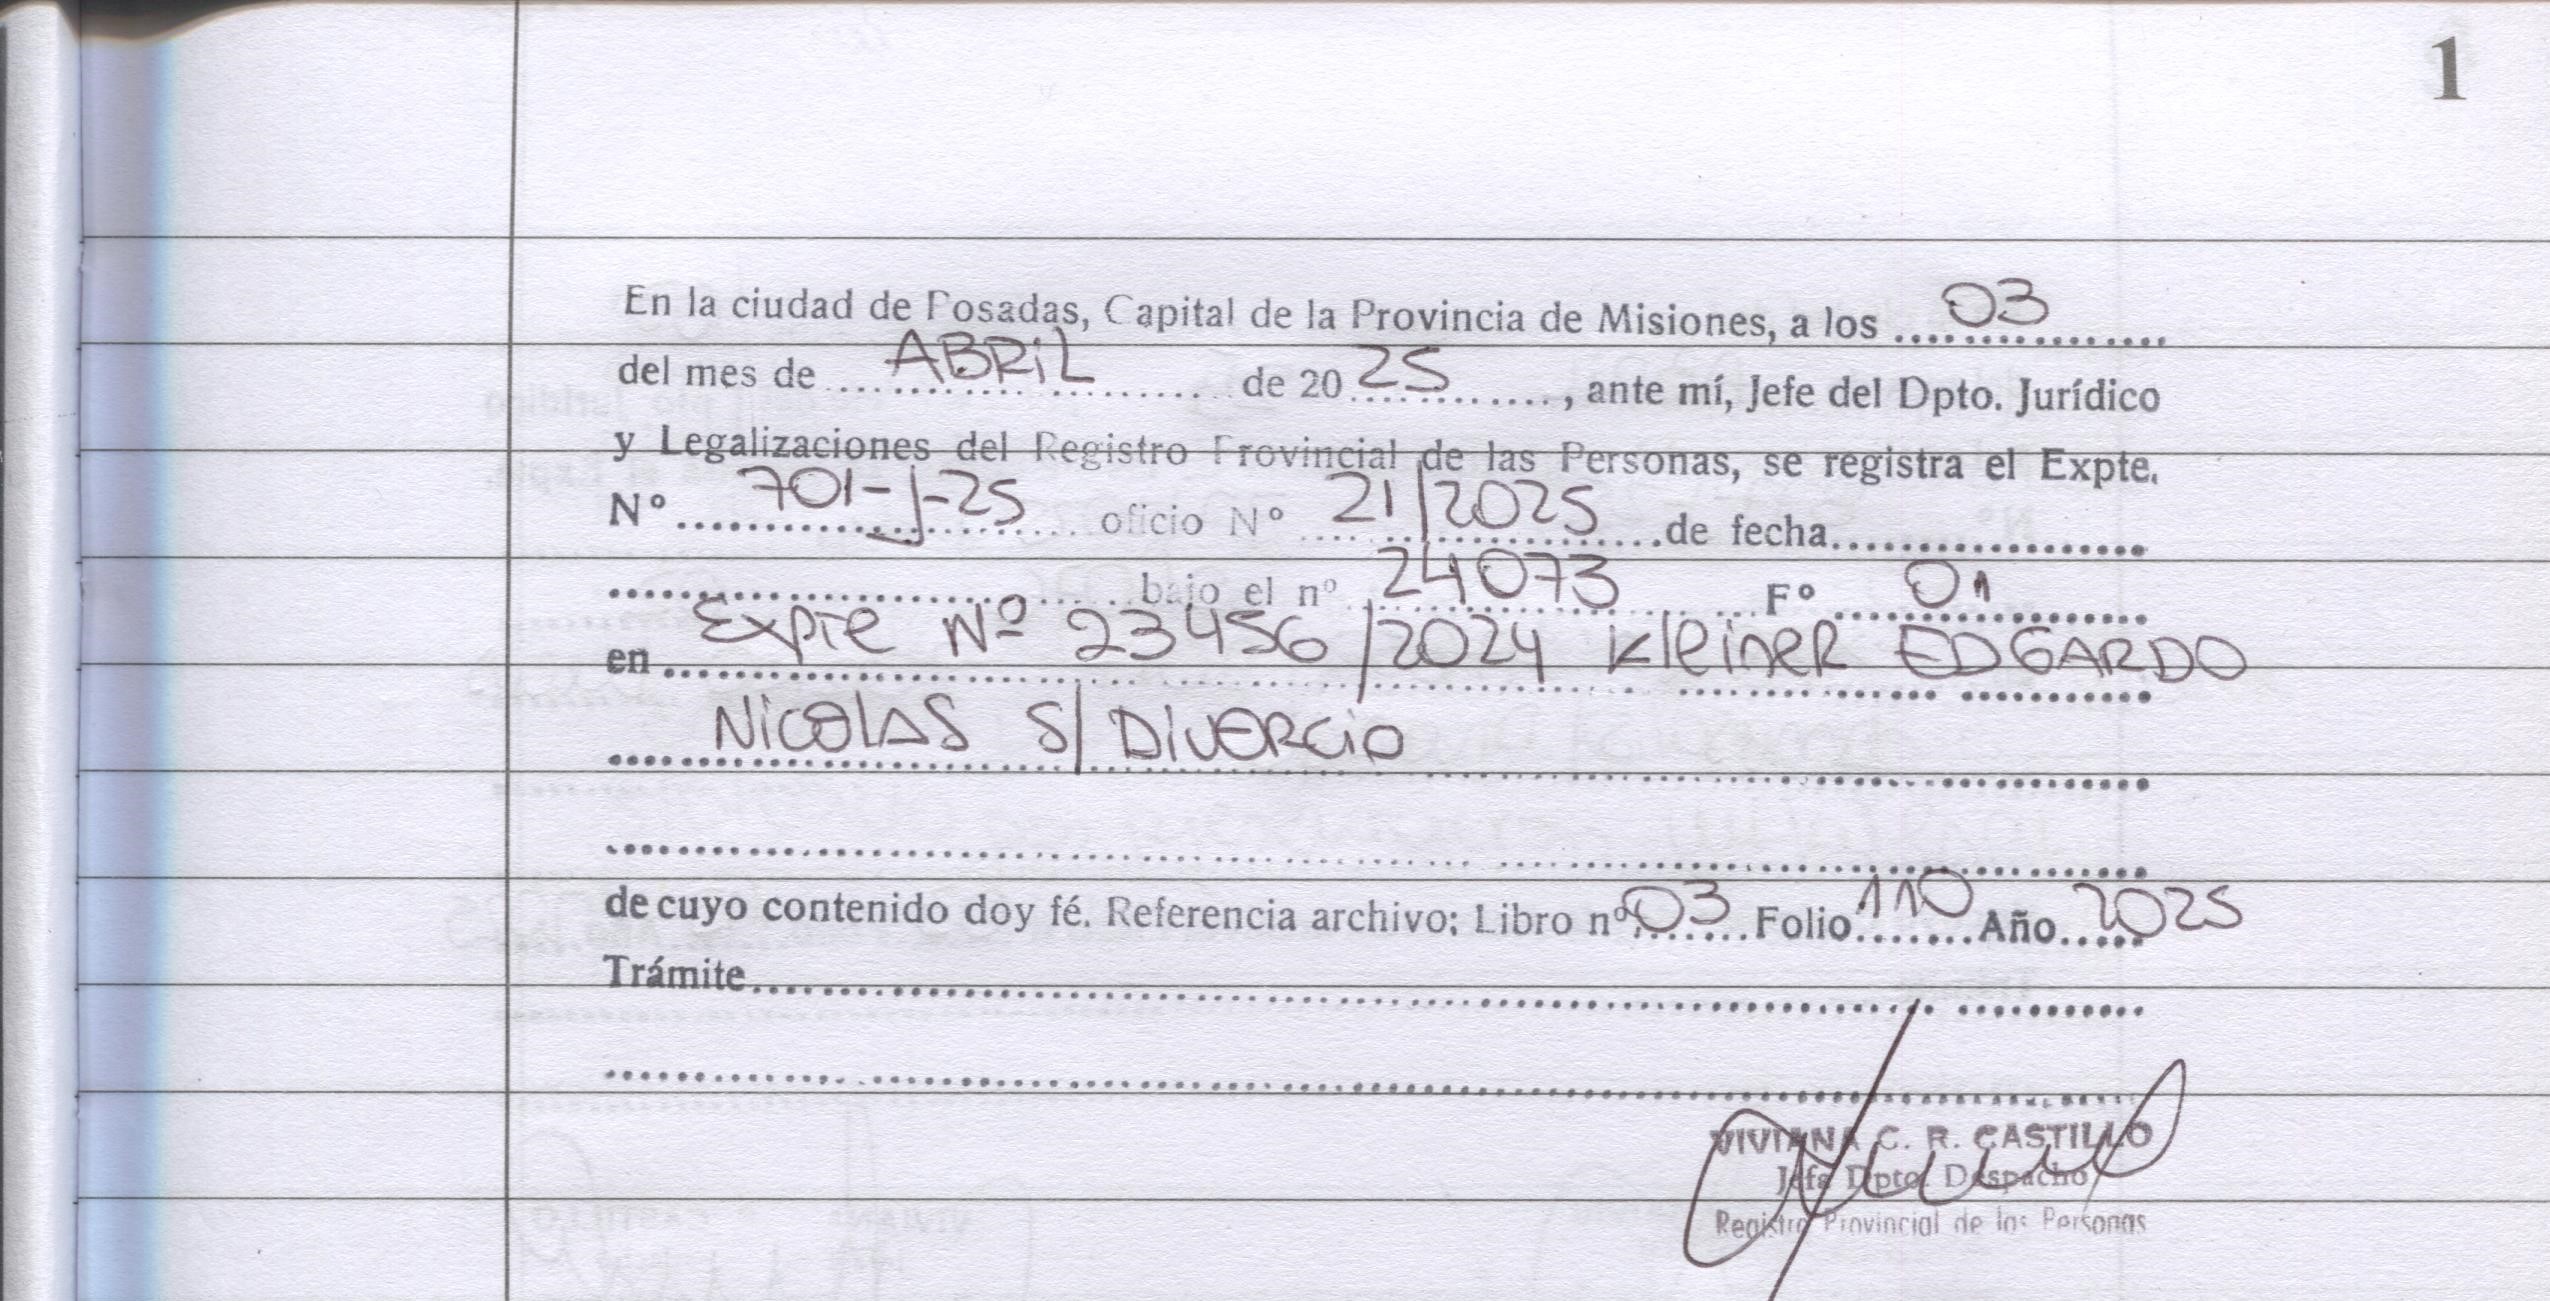 1
En la ciudad de Posadas, Capital de la Provincia de Misiones, a los 03
del mes de ABRIL de 20 25, ante mí, Jefe del Dpto. Jurídico
y Legalizaciones del Registro Provincial de las Personas, se registra el Expte.
N° 701-J-25 oficio N° 21/2025 de fecha
bajo el n° 24073 F° 01
en Expte Nº 23456/2024 Kleiner EDGARDO
NICOLAS S/ DIVORCIO
de cuyo contenido doy fé. Referencia archivo: Libro n° 03 Folio 110 Año 2025
Trámite
VIVIANA C. R. CASTILLO
Jefa Dpto. Despacho
Registro Provincial de las Personas